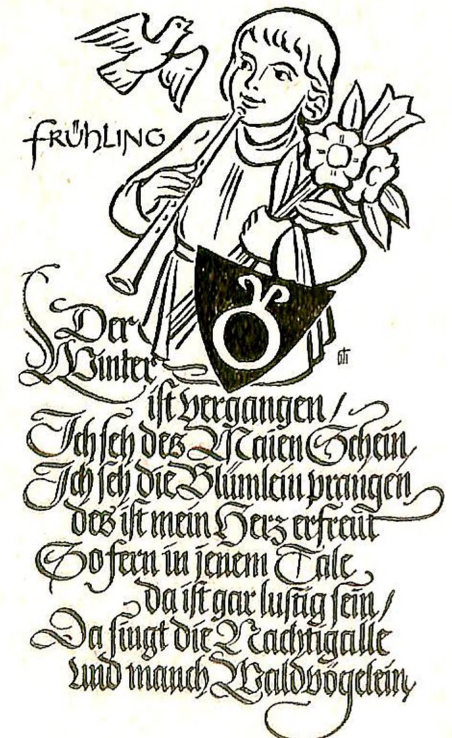 FRÜHLING
Der
Winter
ist vergangen/
Ich seh des Maien Schein,
Ich seh die Blümlein prangen
des ist mein Herz erfreut
So fern in jenem Tale
da ist gar lustig sein/
Da singt die Nachtigalle
und manch Waldvögelein,